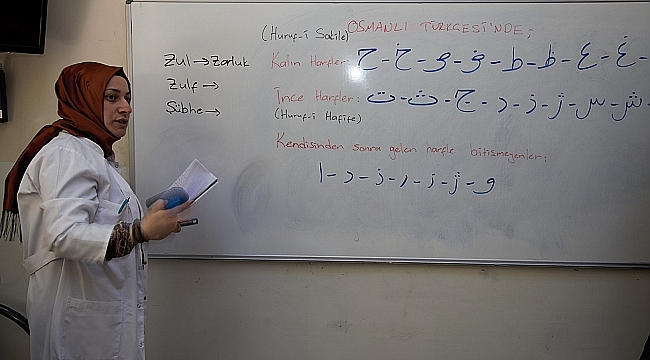 OSMANLI TÜRKÇESİ'NDE;
(Huruf-i Sakile)
Kalın Harfler: ح - خ - ص - ض - ط - ظ - ع - غ -
İnce Harfler: ت - ث - ج - د - ذ - ژ - س - ش -
(Huruf-i Hafife)
Kendisinden sonra gelen harfle bitişmeyenler;
ا - د - ذ - ر - ز - ژ - و
Zul → Zorluk
Zulf →
Şübhe →